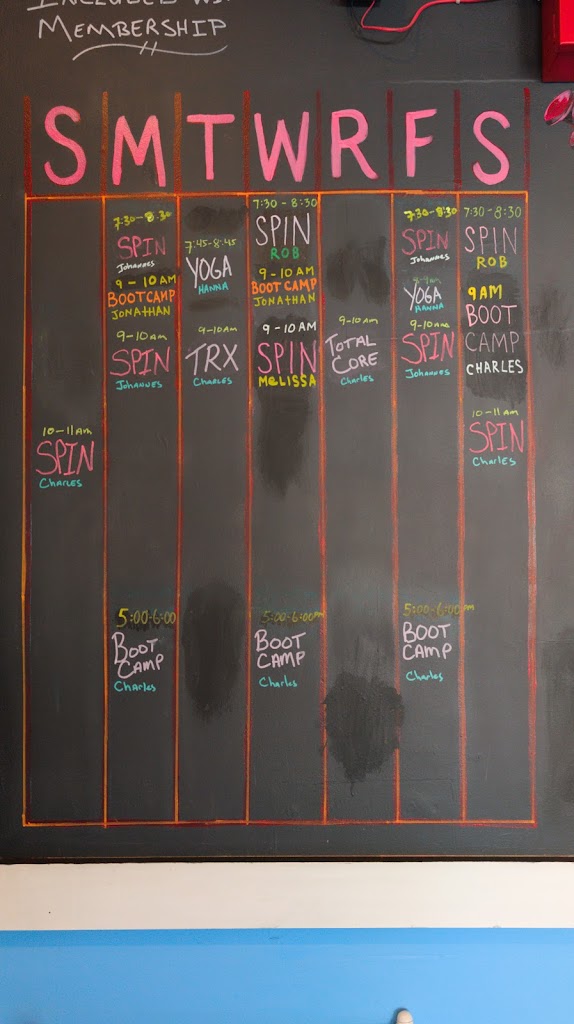 MEMBERSHIP
S M T W R F S
10-11am
SPIN
Charles
7:30-8:30
SPIN
Johannes
9-10AM
BOOTCAMP
JONATHAN
9-10am
SPIN
Johannes
5:00-6:00
BOOT
CAMP
Charles
7:45-8:45
YOGA
HANNA
9-10am
TRX
Charles
7:30-8:30
SPIN
ROB
9-10AM
BOOT CAMP
JONATHAN
9-10AM
SPIN
MELISSA
5:00-6:00pm
BOOT
CAMP
Charles
9-10am
TOTAL
CORE
Charles
7:30-8:30
SPIN
Johannes
YOGA
HANNA
9-10am
SPIN
Johannes
5:00-6:00pm
BOOT
CAMP
Charles
7:30-8:30
SPIN
ROB
9AM
BOOT
CAMP
CHARLES
10-11am
SPIN
Charles